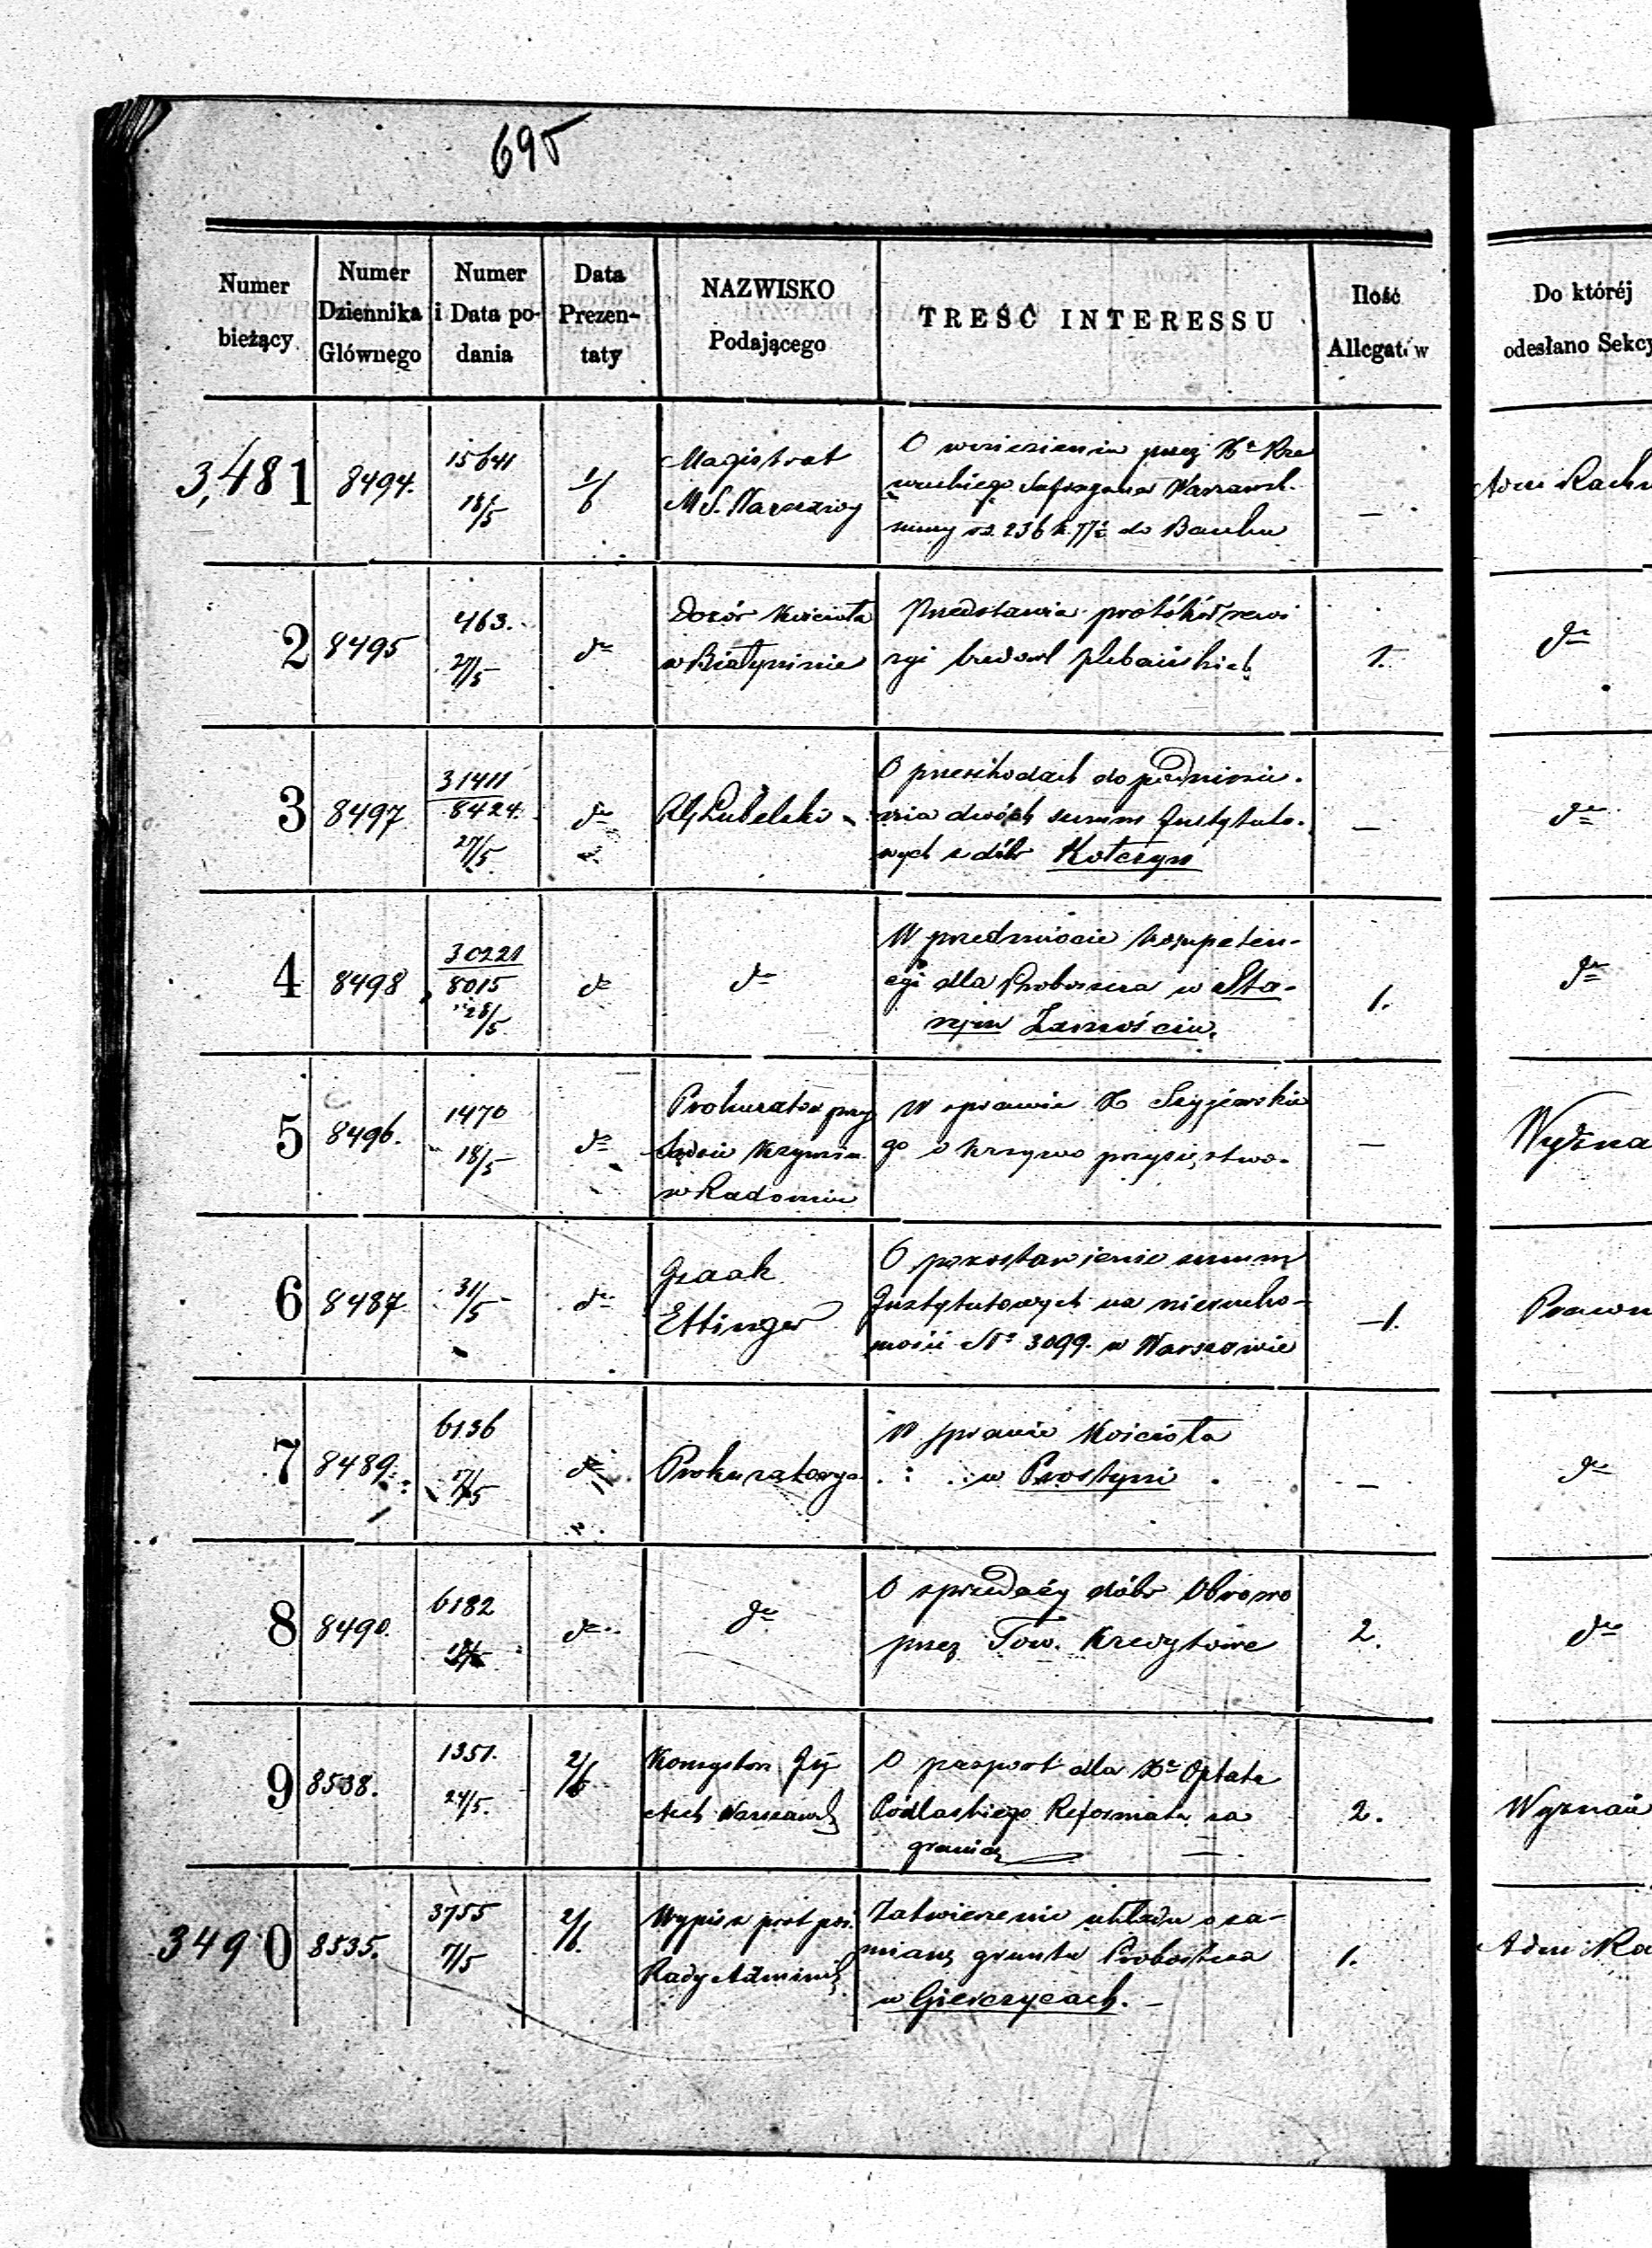 695
Numer bieżący
Numer Dziennika Głównego
Numer i Data podania
Data Prezentaty
NAZWISKO Podającego
TREŚĆ INTERESSU
Ilość Allegatów
Do któréj odesłano Sekcy
3,481
8494.
15641
18/5
1/6
Magistrat
M S. Warszawy
O wniesieniu przez Xa Rze
wuskiego Sufragana Warszawsk.
sumy rs. 236 k. 77½ do Banku
—
Adm Rach
2
8495
463.
27/5
do
Dozór Kościoła
w Białyninie
Przedstawia protókół rewi
zyi budowl plebańskich
1.
do
3
8497
31411
8424.
27/5
do
RG Lubelski
O przeszkodach do podniesie-
nia dwóch summ Instytuto-
wych z dóbr Kołczyn
—
do
4
8498
30221
8015
28/5
do
do
W przedmiocie kompeten-
cyi dla Proboszcza w Sta-
rym Zamościu.
1.
do
5
8496.
1470
18/5
do
Prokurator przy
Sądzie Krymin.
w Radomiu
W sprawie X
go o krzywo przysięstwo.
—
Wyzna
6
8487
31/5
do
Izaak
Ettinger
O pozostawienie summ
Instytutowych na nierucho-
mości No 3099. w Warszawie
1.
Prawn
7
8489.
6136
/5
do
Prokuratorya
W sprawie Kościoła
w Prostyni
—
do
8
8490.
6182
do
do
O sprzedaży dóbr Obrowo
przez Tow. Kredytowe
2.
do
9
8538.
1351.
24/5.
2/6
Konsystorz Jlny
Arch Warszawski
O paszport dla Xa Optata
Podlaskiego Reformata za
granicę
2.
Wyznań
3490
8535.
3755
7/5
2/6.
Wypis z prot pos.
Rady Administr
Zatwierdzenie układu o za-
mianę gruntu Proboszcza
w Gierczycach. —
1.
Adm Ra